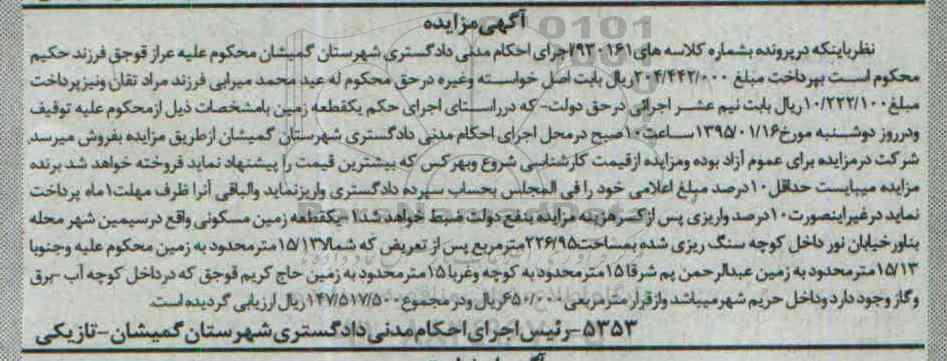 آگهی مزایده
نظر باینکه در پرونده بشماره کلاسه های ۹۳۰۱۶۱/اجرای احکام مدنی دادگستری شهرستان گمیشان محکوم علیه عراز قوجق فرزند حکیم
محکوم است بپرداخت مبلغ ۲۰۴/۴۴۲/۰۰۰ریال بابت اصل خواسته وغیره درحق محکوم له عید محمد میرابی فرزند مراد تقان ونیز پرداخت
مبلغ۱۰/۲۲۲/۱۰۰ریال بابت نیم عشر اجرائی درحق دولت- که درراستای اجرای حکم یکقطعه زمین بامشخصات ذیل ازمحکوم علیه توقیف
ودرروز دوشنبه مورخ۱۳۹۵/۰۱/۱۶ساعت۱۰صبح درمحل اجرای احکام مدنی دادگستری شهرستان گمیشان ازطریق مزایده بفروش میرسد
شرکت درمزایده برای عموم آزاد بوده ومزایده ازقیمت کارشناسی شروع وبهرکس که بیشترین قیمت را پیشنهاد نماید فروخته خواهد شد برنده
مزایده میبایست حداقل۱۰درصد مبلغ اعلامی خود را فی المجلس بحساب سپرده دادگستری واریزنماید والباقی آنرا ظرف مهلت۱ماه پرداخت
نماید درغیراینصورت۱۰درصد واریزی پس ازکسرهزینه مزایده بنفع دولت ضبط خواهد شد۱-یکقطعه زمین مسکونی واقع درسیمین شهر محله
بناورخیابان نور داخل کوچه سنگ ریزی شده بمساحت۲۲۶/۹۵مترمربع پس از تعریض که شمالا۱۵/۱۳مترمحدود به زمین محکوم علیه وجنوبا
۱۵/۱۳مترمحدود به زمین عبدالرحمن پم شرقا۱۵مترمحدود به کوچه وغربا۱۵مترمحدود به زمین حاج کریم قوجق که درداخل کوچه آب -برق
وگاز وجود دارد وداخل حریم شهر میباشد وازقرار مترمربعی۶۵۰/۰۰۰ریال ودر مجموع۱۴۷/۵۱۷/۵۰۰ریال ارزیابی گردیده است.
۵۳۵۳-رئیس اجرای احکام مدنی دادگستری شهرستان گمیشان-تازیکی